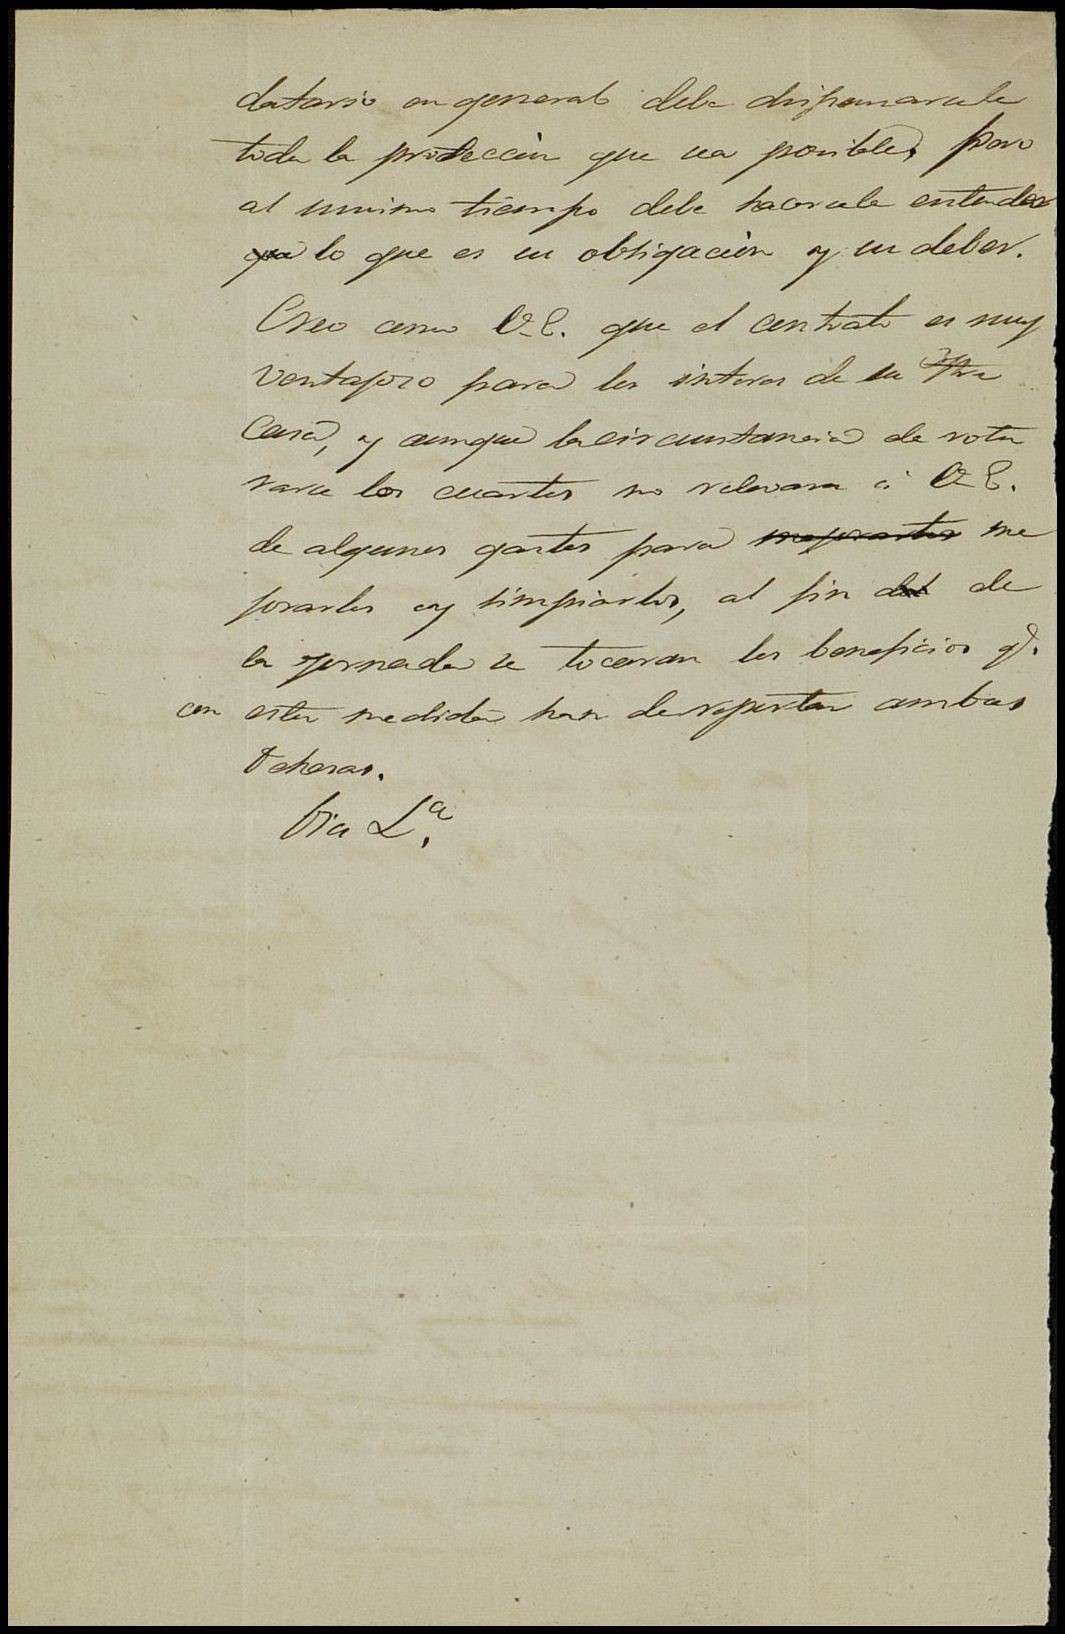 datario en general debe dispensarsele
toda la protección que sea posible, pero
al mismo tiempo debe hacersele entender
que lo que es su obligación y su deber.
Creo como V.E. que el contrato es muy
ventajoso para los interes de su
Casa, y aunque la circunstancia de rotu
rarse los cuartos no relevara á V.E.
de algunos gastos para mejorarlos me
jorarlos y limpiarlos, al fin del de
la jornada se tocaran los beneficios q.
con esta medida han de reportar ambas
dehesas.